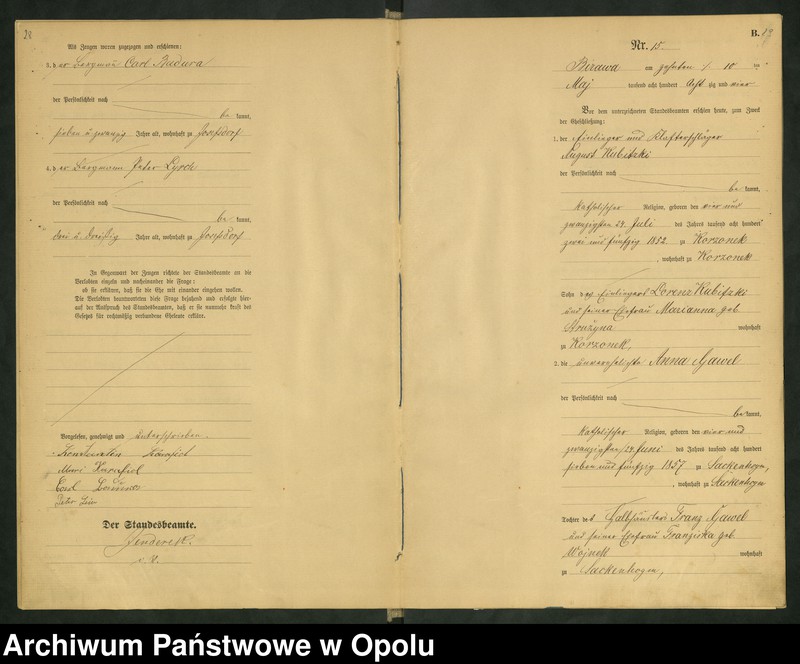 28
Als Zeugen waren zugezogen und erschienen:
3. der Bergmann Carl Budura
der Persönlichkeit nach
be kannt,
sieben u zwanzig Jahre alt, wohnhaft zu Josefsdorf
4. der Bergmann Peter Lyrch
der Persönlichkeit nach
be kannt,
drei u. dreißig Jahre alt, wohnhaft zu Josefsdorf
In Gegenwart der Zeugen richtete der Standesbeamte an die
Verlobten einzeln und nacheinander die Frage:
ob sie erklären, daß sie die Ehe mit einander eingehen wollen.
Die Verlobten beantworteten diese Frage bejahend und erfolgte hier-
auf der Ausspruch des Standesbeamten, daß er sie nunmehr kraft des
Gesetzes für rechtmäßig verbundene Eheleute erkläre.
Vorgelesen, genehmigt und unterschrieben.
Carl
Peter
Der Standesbeamte.
Jenderek.
B.
Nr. 15
Birawa am zehnten / 10 ten
Maj tausend acht hundert acht zig und vier
Vor dem unterzeichneten Standesbeamten erschien heute, zum Zweck
der Eheschließung:
1. der Einlieger und Klafterschläger
August Kubitzki
der Persönlichkeit nach
be kannt,
katholischer Religion, geboren den vier und
zwanzigsten 24. Juli des Jahres tausend acht hundert
zwei und fünfzig 1852 zu Korzonek
, wohnhaft zu Korzonek
Sohn des Einliegers Lorenz Kubitzki
und seiner Ehefrau Marianna geb.
Struzyna wohnhaft
zu Korzonek,
2. die unverehelichte Anna Gawel
der Persönlichkeit nach
be kannt,
katholischer Religion, geboren den vier und
zwanzigsten / 24. Juni des Jahres tausend acht hundert
sieben und fünfzig 1857 zu Sackenhoym,
, wohnhaft zu Sackenhoym
Tochter des Halbhäuslers Franz Gawel
und seiner Ehefrau Franziska geb.
Wojnek wohnhaft
zu Sackenhoym,
Archiwum Państwowe w Opolu